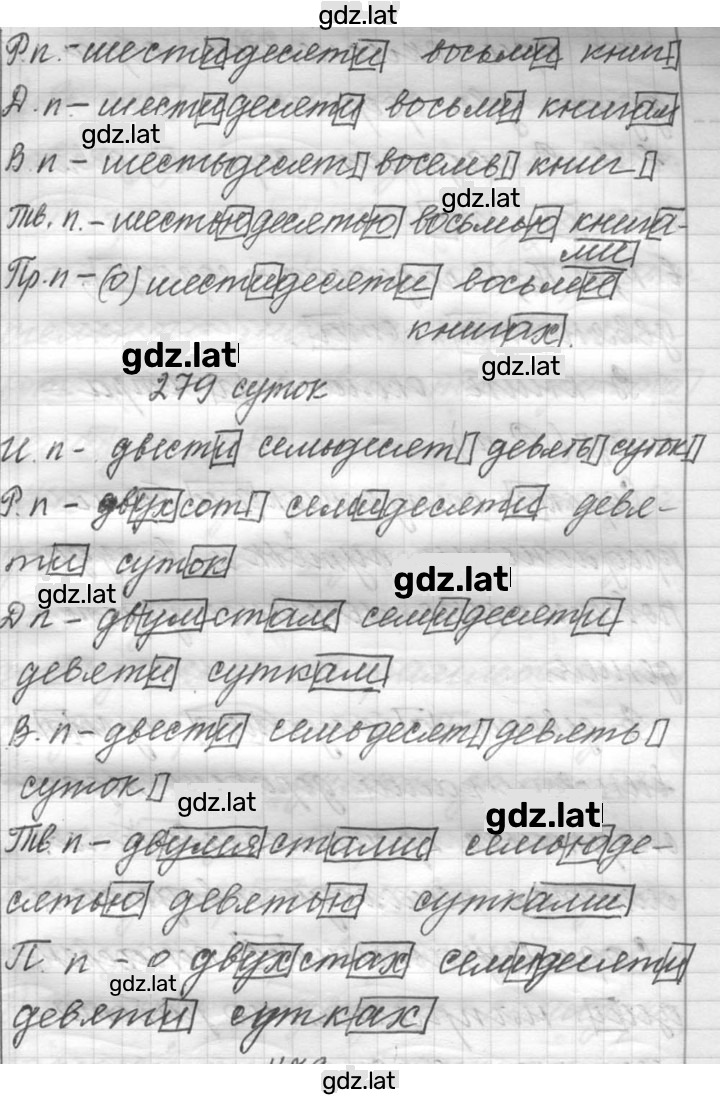 gdz.lat
Р.п.-шестидесяти восьми книг
Д.п- шестидесяти восьми книгам
gdz.lat
В.п - шестьдесят восемь книг
gdz.lat
Тв.п.- шестьюдесятью восьмью книга-
ми
Пр.п - (о) шестидесяти восьми
книгах.
gdz.lat
gdz.lat
279 суток
И.п - двести семьдесят девять суток
Р.п - двухсот семидесяти девя-
ти суток
gdz.lat
gdz.lat
Д п - двумстам семидесяти
девяти суткам
В.п - двести семьдесят девять
суток
gdz.lat
gdz.lat
Тв.п - двумястами семьюде-
сятью девятью сутками
П. п - о двухстах семидесяти
gdz.lat
девяти сутках
gdz.lat